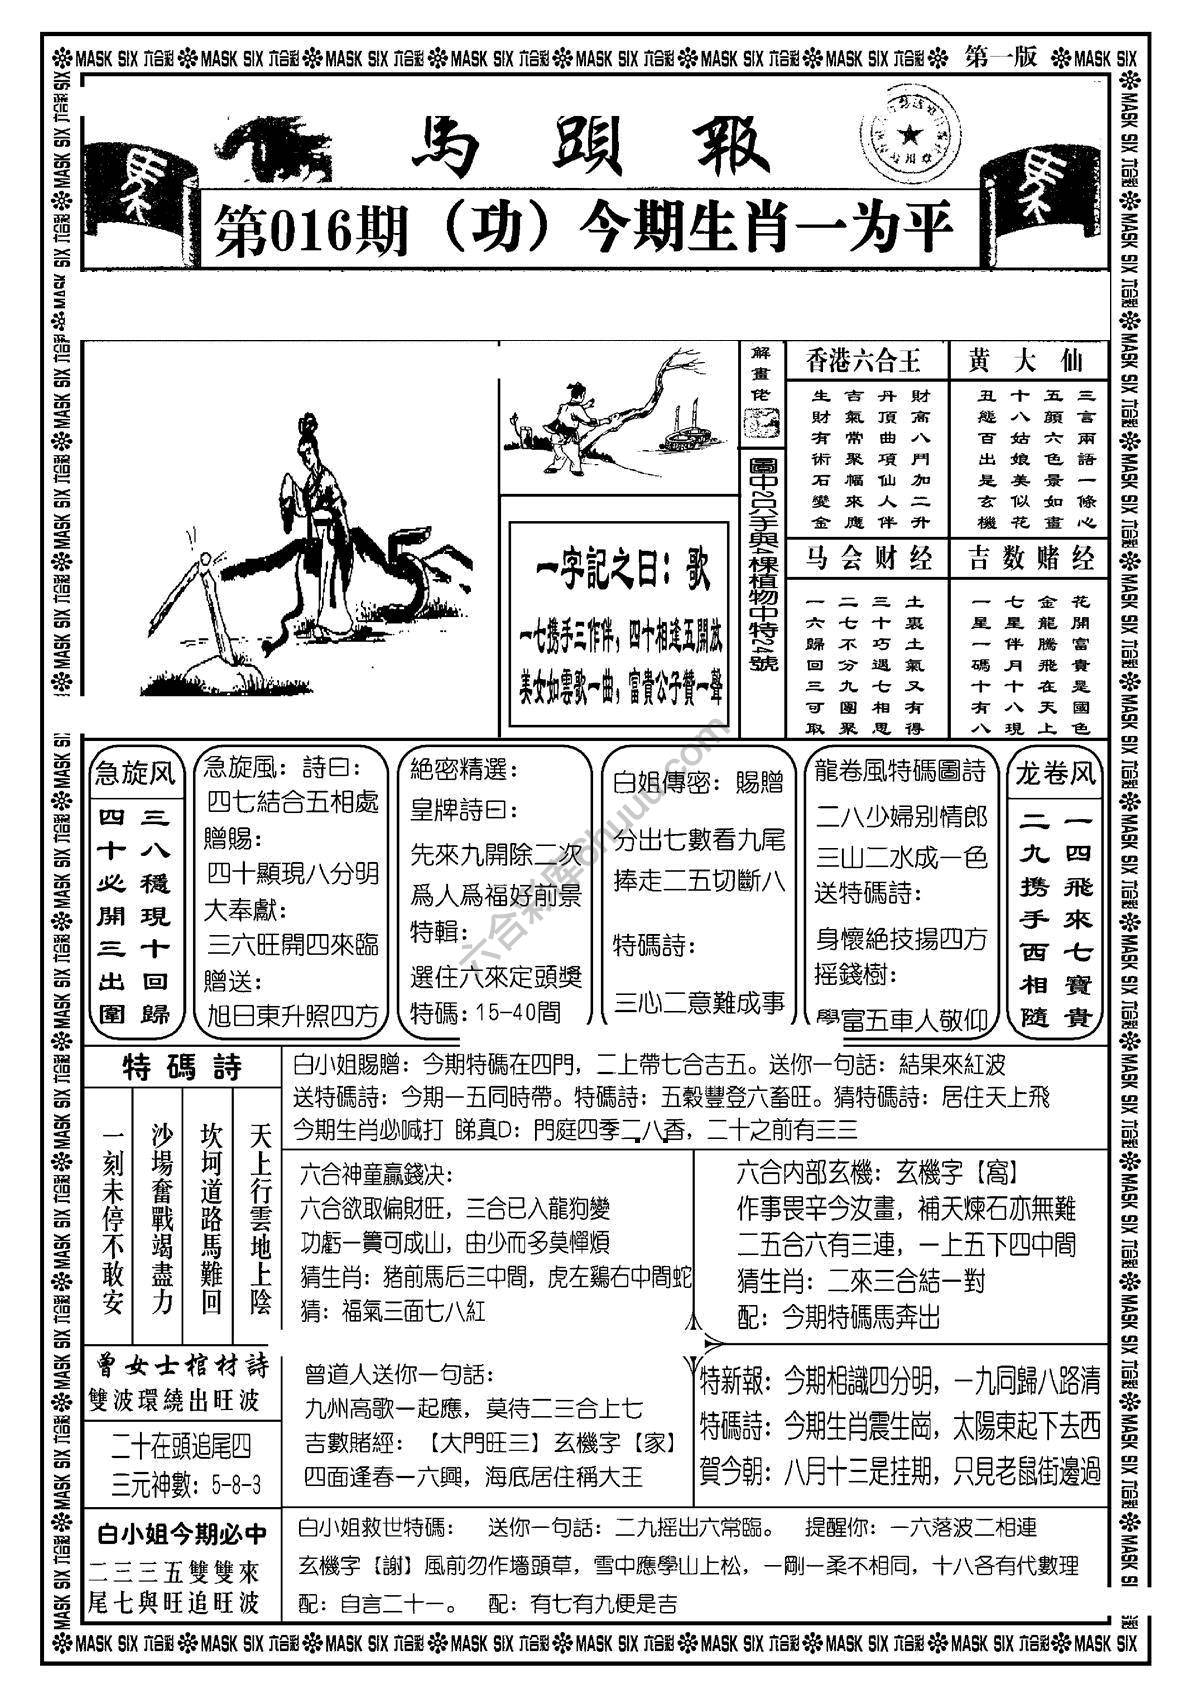 MASK SIX 六合彩 MASK SIX 六合彩 MASK SIX 六合彩 MASK SIX 六合彩 MASK SIX 六合彩 MASK SIX 六合彩 MASK SIX 六合彩 第一版 MASK SIX
馬頭報
第016期（功）今期生肖一为平
解畫佬
圖中2只手與4棵植物中特24號
一字記之曰：歌
一七携手三作伴，四十相逢五開放
美女如雲歌一曲，富貴公子贊一聲
香港六合王
財高八門加二升
丹頂曲項仙人伴
吉氣常聚幅來應
生財有術石變金
黄大仙
三言兩語一條心
五顔六色景如畫
十八姑娘美似花
丑態百出是玄機
马会财经
土裏土氣又有得
三十巧遇七相思
二七不分九團聚
一六歸回三可取
吉数赌经
花開富貴是國色
金龍騰飛在天上
七星伴月十八現
一星一碼十有八
急旋风
三八穩現十回歸
四十必開三出圍
急旋風：詩曰：
四七結合五相處
贈賜：
四十顯現八分明
大奉獻：
三六旺開四來臨
贈送：
旭日東升照四方
絕密精選：
皇牌詩曰：
先來九開除二次
爲人爲福好前景
特輯：
選住六來定頭獎
特碼：15-40間
白姐傳密：賜贈
分出七數看九尾
捧走二五切斷八
特碼詩：
三心二意難成事
龍卷風特碼圖詩
二八少婦别情郎
三山二水成一色
送特碼詩：
身懷絕技揚四方
摇錢樹：
學富五車人敬仰
龙卷风
一四飛來七寶貴
二九携手西相隨
特碼詩
天上行雲地上陰
坎坷道路馬難回
沙場奮戰竭盡力
一刻未停不敢安
白小姐賜贈：今期特碼在四門，二上帶七合吉五。送你一句話：結果來紅波
送特碼詩：今期一五同時帶。特碼詩：五穀豐登六畜旺。猜特碼詩：居住天上飛
今期生肖必喊打 睇真D：門庭四季二八香，二十之前有三三
六合神童贏錢决：
六合欲取偏財旺，三合已入龍狗變
功虧一簣可成山，由少而多莫憚煩
猜生肖：猪前馬后三中間，虎左鷄右中間蛇
猜：福氣三面七八紅
六合内部玄機：玄機字【窩】
作事畏辛今汝畫，補天煉石亦無難
二五合六有三連，一上五下四中間
猜生肖：二來三合結一對
配：今期特碼馬奔出
曾女士棺材詩
雙波環繞出旺波
二十在頭追尾四
三元神數：5-8-3
曾道人送你一句話：
九州高歌一起應，莫待二三合上七
吉數賭經：【大門旺三】玄機字【家】
四面逢春一六興，海底居住稱大王
特新報：今期相識四分明，一九同歸八路清
特碼詩：今期生肖震生崗，太陽東起下去西
賀今朝：八月十三是挂期，只見老鼠街邊過
白小姐今期必中
二三三五雙雙來
尾七與旺追旺波
白小姐救世特碼： 送你一句話：二九摇出六常臨。 提醒你：一六落波二相連
玄機字【謝】風前勿作墻頭草，雪中應學山上松，一剛一柔不相同，十八各有代數理
配：自言二十一。 配：有七有九便是吉
MASK SIX 六合彩 MASK SIX 六合彩 MASK SIX 六合彩 MASK SIX 六合彩 MASK SIX 六合彩 MASK SIX 六合彩 MASK SIX 六合彩 MASK SIX 六合彩 MASK SIX